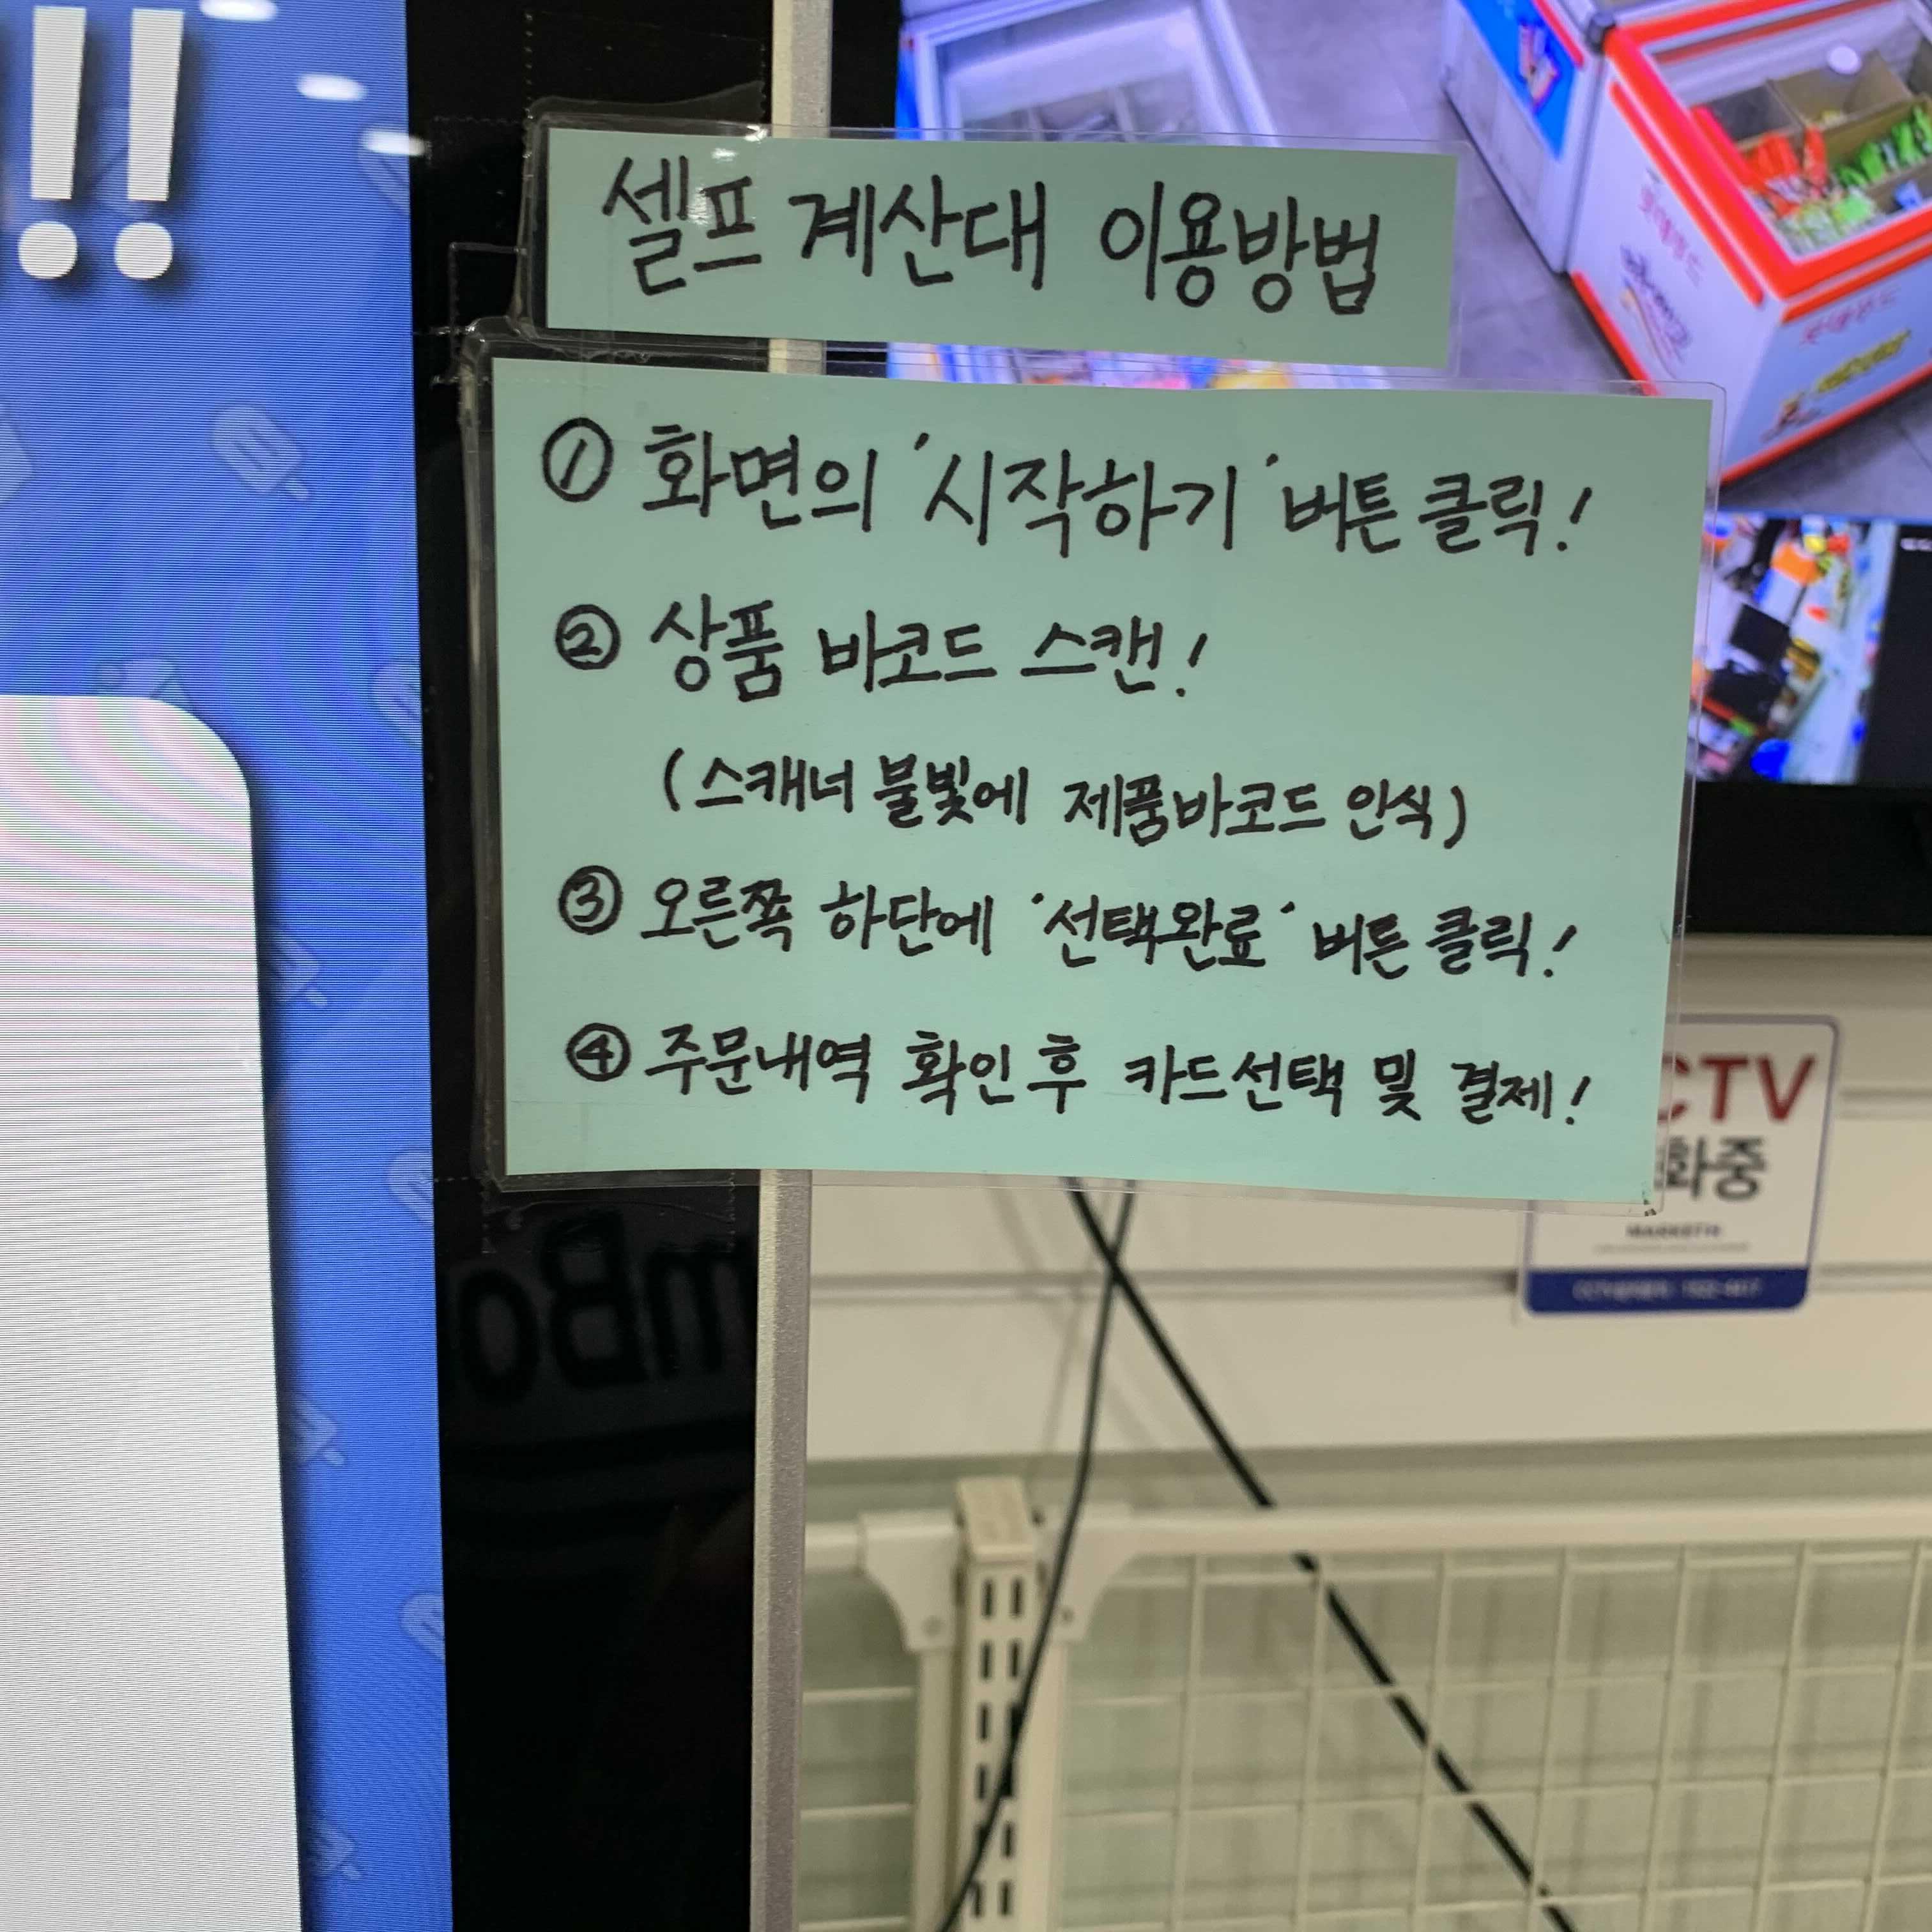 !!
셀프 계산대 이용방법
① 화면의 '시작하기' 버튼 클릭!
② 상품 바코드 스캔!
(스캐너 불빛에 제품바코드 인식)
③ 오른쪽 하단에 '선택완료' 버튼 클릭!
④ 주문내역 확인 후 카드선택 및 결제!
CTV
화중